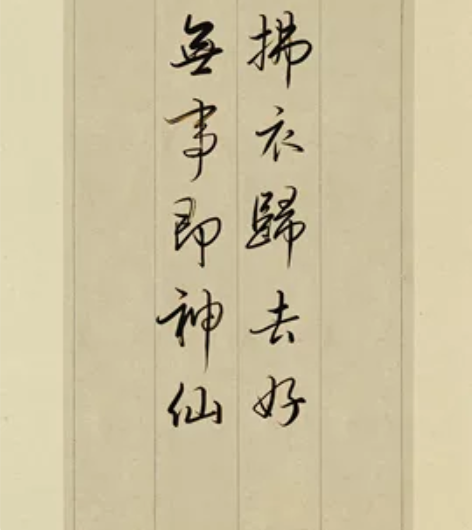 拂衣歸去好
無事即神仙